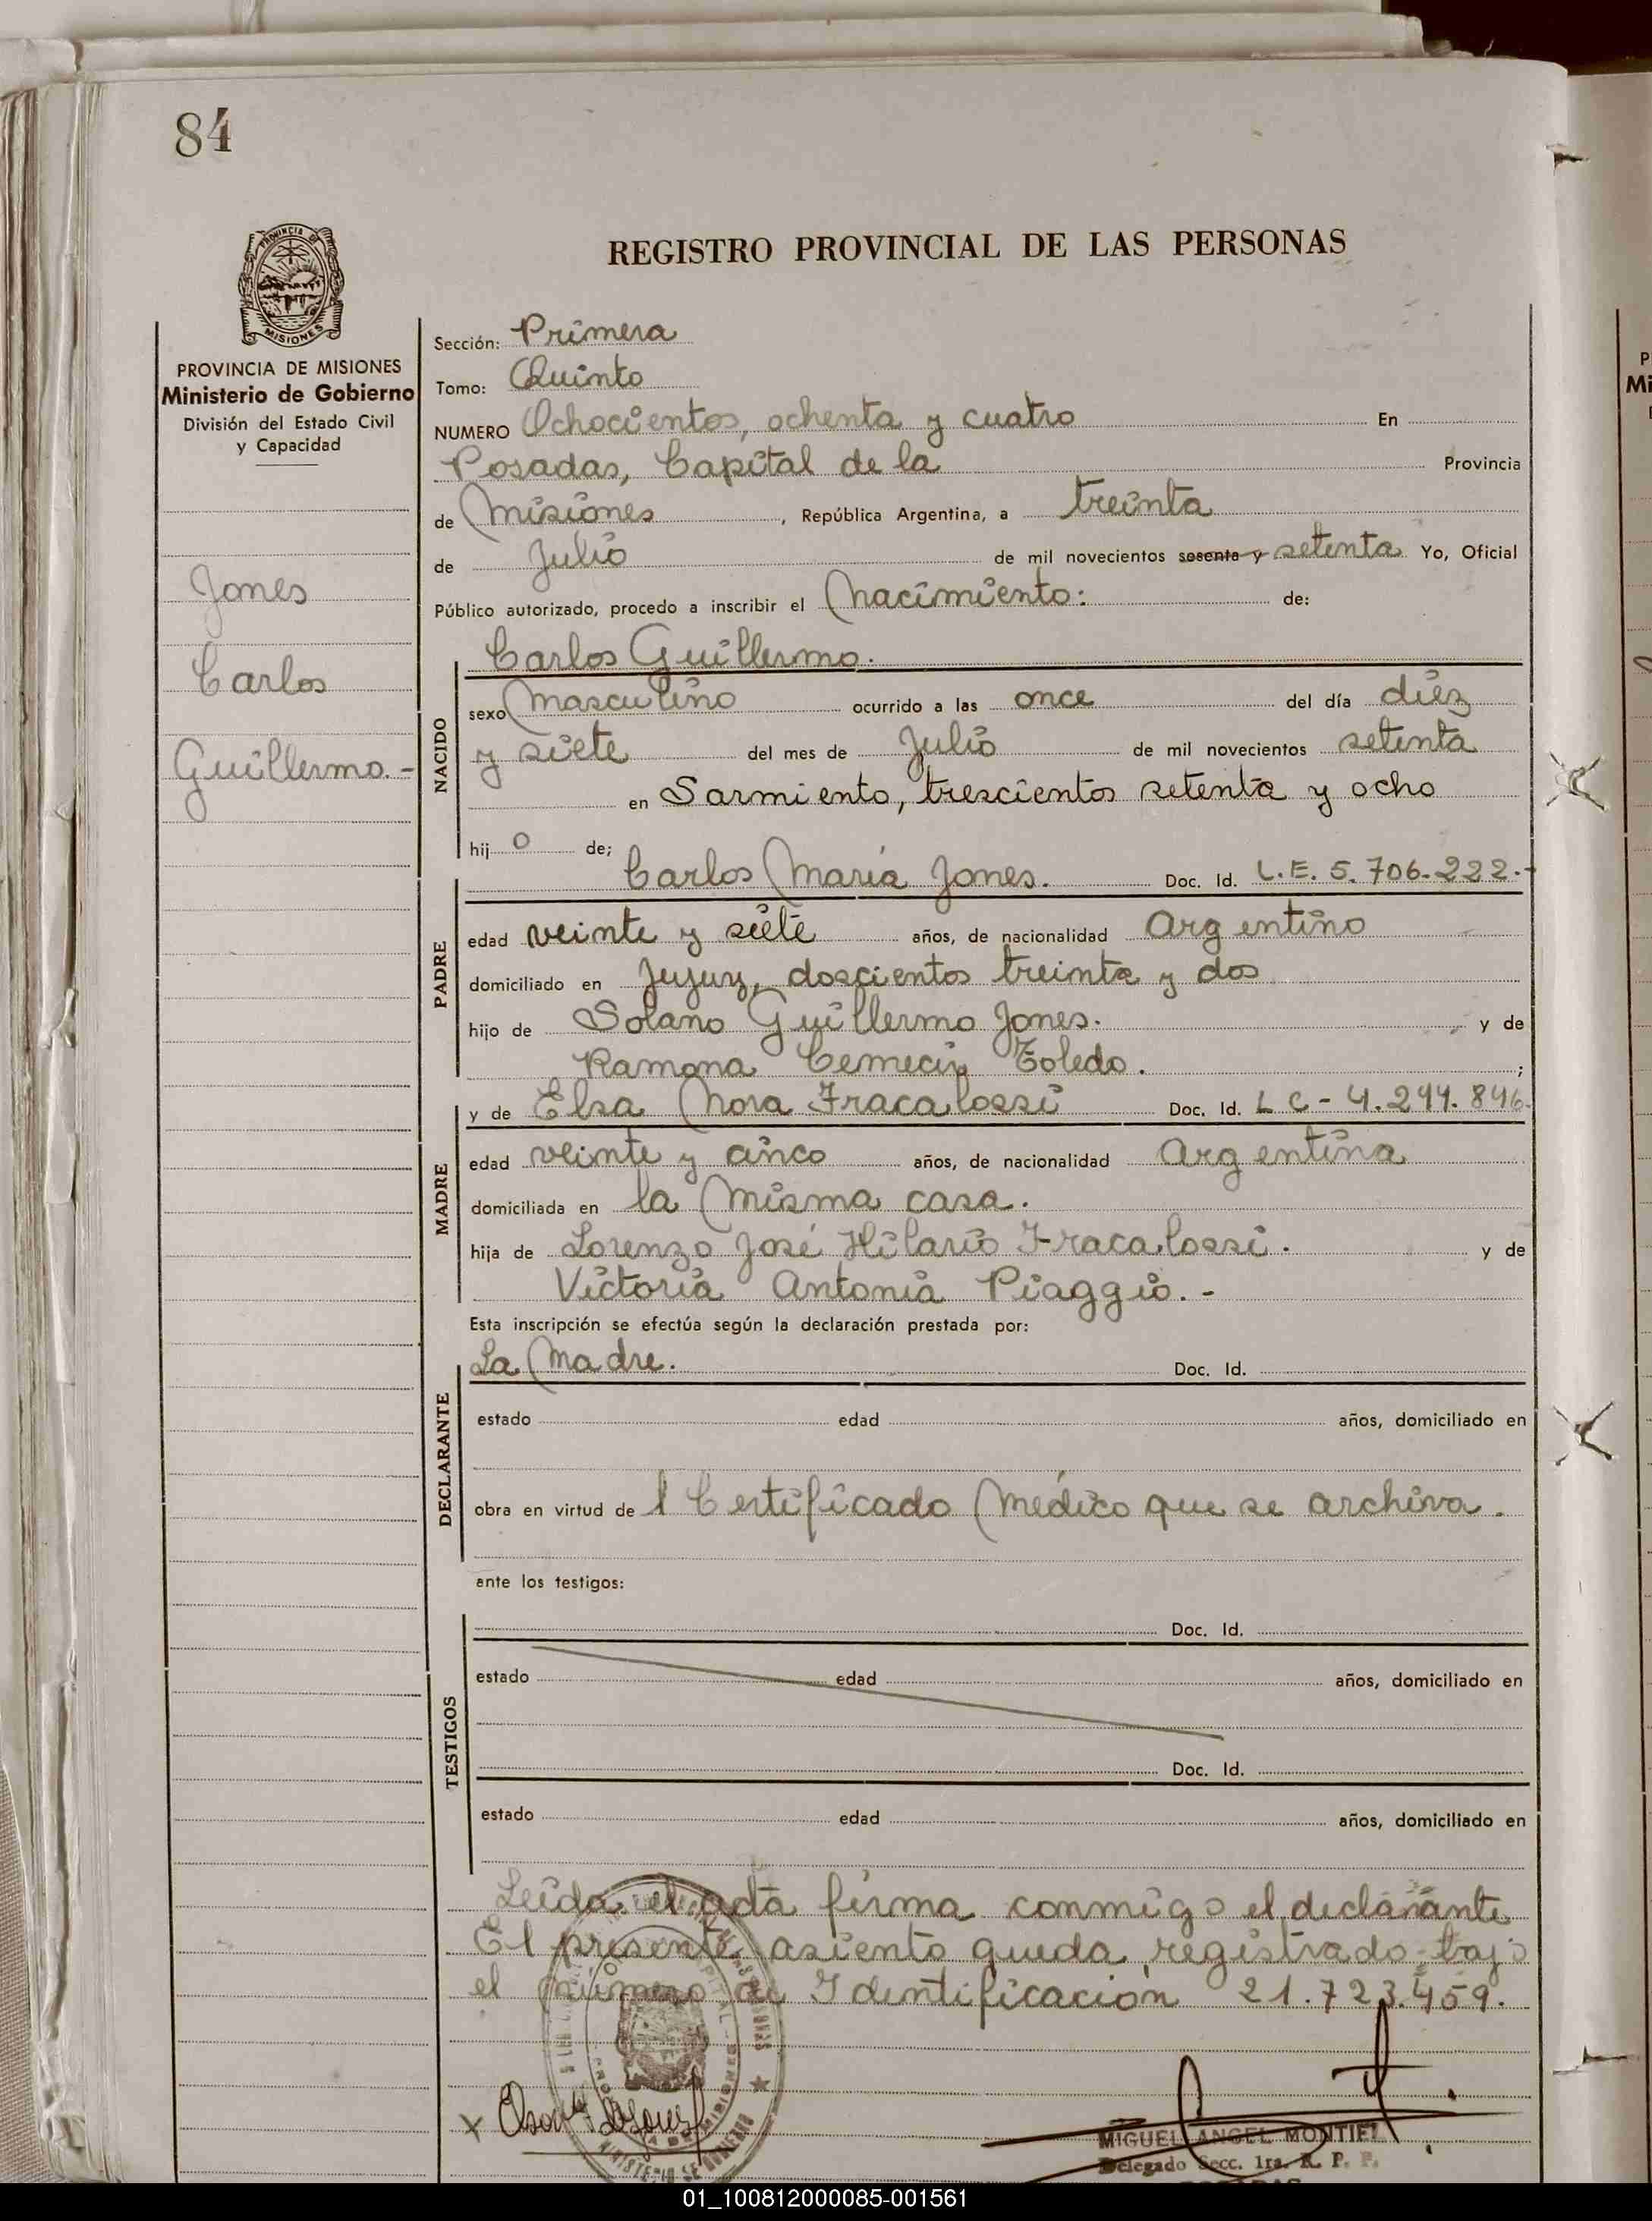 84
REGISTRO PROVINCIAL DE LAS PERSONAS
PROVINCIA DE MISIONES
Ministerio de Gobierno
División del Estado Civil
y Capacidad
Jones
Carlos
Guillermo.-
Sección: Primera
Tomo: Quinto
NUMERO Ochocientos, ochenta y cuatro En
Posadas, Capital de la Provincia
de Misiones, República Argentina, a treinta
de Julio de mil novecientos sesenta y setenta Yo, Oficial
Público autorizado, procedo a inscribir el Nacimiento: de:
Carlos Guillermo.
NACIDO
sexo Masculino ocurrido a las once del día diez
y siete del mes de Julio de mil novecientos setenta
en Sarmiento, trescientos setenta y ocho
hij o de;
Carlos María Jones. Doc. Id. L.E. 5.706.222.-
PADRE
edad veinte y siete años, de nacionalidad Argentino
domiciliado en Jujuy, doscientos treinta y dos
hijo de Solano Guillermo Jones. y de
Ramona Toledo. ;
y de Elsa Nora Fracalossi Doc. Id. L C - 4.244.846.
MADRE
edad veinte y cinco años, de nacionalidad Argentina
domiciliada en la misma casa.
hija de Lorenzo José Hilario Fracalossi. y de
Victoria Antonia Piaggio.-
Esta inscripción se efectúa según la declaración prestada por:
La Madre. Doc. Id.
DECLARANTE
estado edad años, domiciliado en
obra en virtud de l Certificado Médico que se archiva.
ante los testigos:
Doc. Id.
TESTIGOS
estado edad años, domiciliado en
Doc. Id.
estado edad años, domiciliado en
Leída el acta firma conmigo el declarante
El presente asiento queda registrado bajo
el número de Identificación 21.723.459.
MIGUEL ANGEL MONTIEL
Delegado Secc. 1ra. R. P. P.
01_100812000085-001561